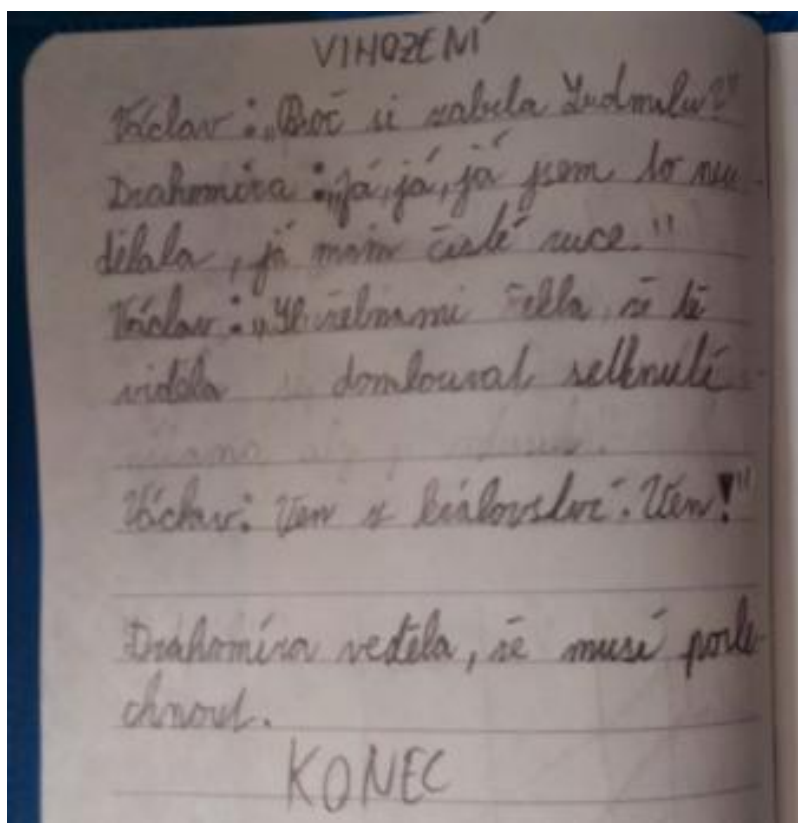 VIHOZENÍ
Václav: „Proč si zabila Ludmilu?"
Drahomíra: „Já, já, já jsem to neu-
dělala, já mám čisté ruce."
Václav: řekla, že tě
viděla domlouvat
Václav: Ven z království. Ven!"
Drahomíra veděla, že musí posle-
chnout.
KONEC